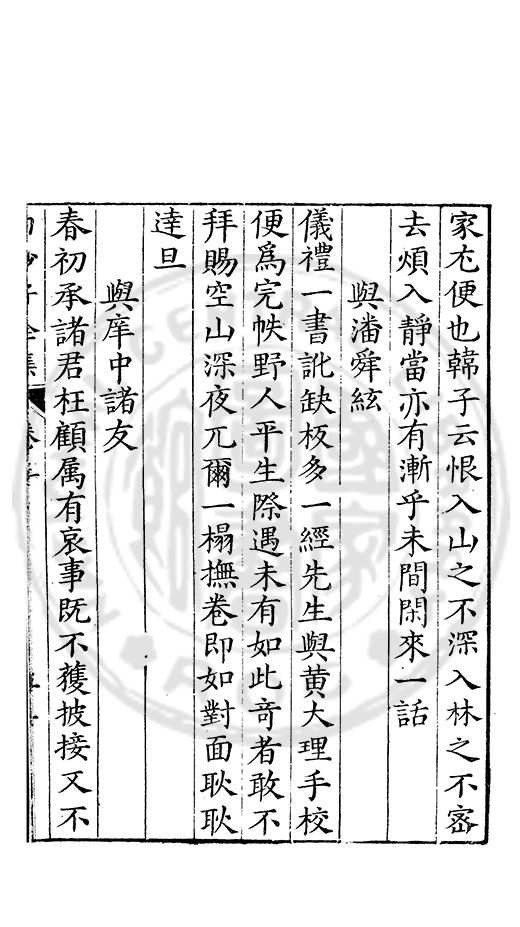 家尤便也韓子云恨入山之不深入林之不密
去煩入靜當亦有漸乎未間閑來一話
與潘舜絃
儀禮一書訛缺板多一經先生與黄大理手校
便爲完帙野人平生際遇未有如此竒者敢不
拜賜空山深夜兀爾一榻撫卷即如對面耿耿
達旦
與庠中諸友
春初承諸君枉顧属有哀事既不獲披接又不